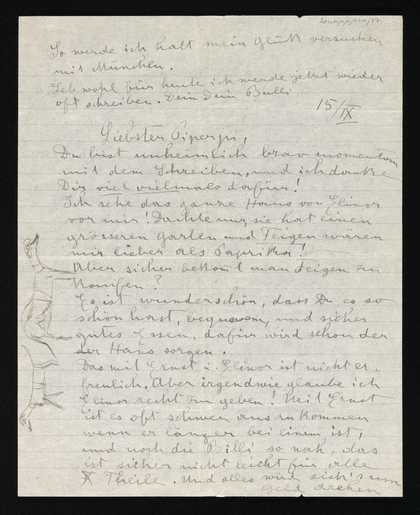 So werde ich halt mein Glück versuchen
mit München.
Leb wohl für heute ich werde jetzt wieder
oft schreiben. Dein Dein Bulli
15/IX
Liebster
Du bist unheimlich brav momentan
mit dem Schreiben, und ich danke
Dir viel vielmals dafür!
Ich sehe das ganze Haus von Elinor
vor mir! sie hat einen
grösseren Garten und Feigen wären
mir lieber als Paprika!
Aber sicher bekomt man Feigen zu
kaufen?
Es ist wunderschön, dass Du es so
schön hast, bequem, und sicher
gutes Essen, dafür wird schon der
der Hans sorgen.
Das mit Ernst u. Elinor ist nicht er-
freulich, Aber irgendwie glaube ich
Elinor recht zu geben! Weil Ernst
ist es oft schwer auszukommen
wenn er länger bei einem ist,
und noch die Billi so nah, das
ist sicher nicht leicht für alle
Theile. Und alles wird sich's um
Geld drehen